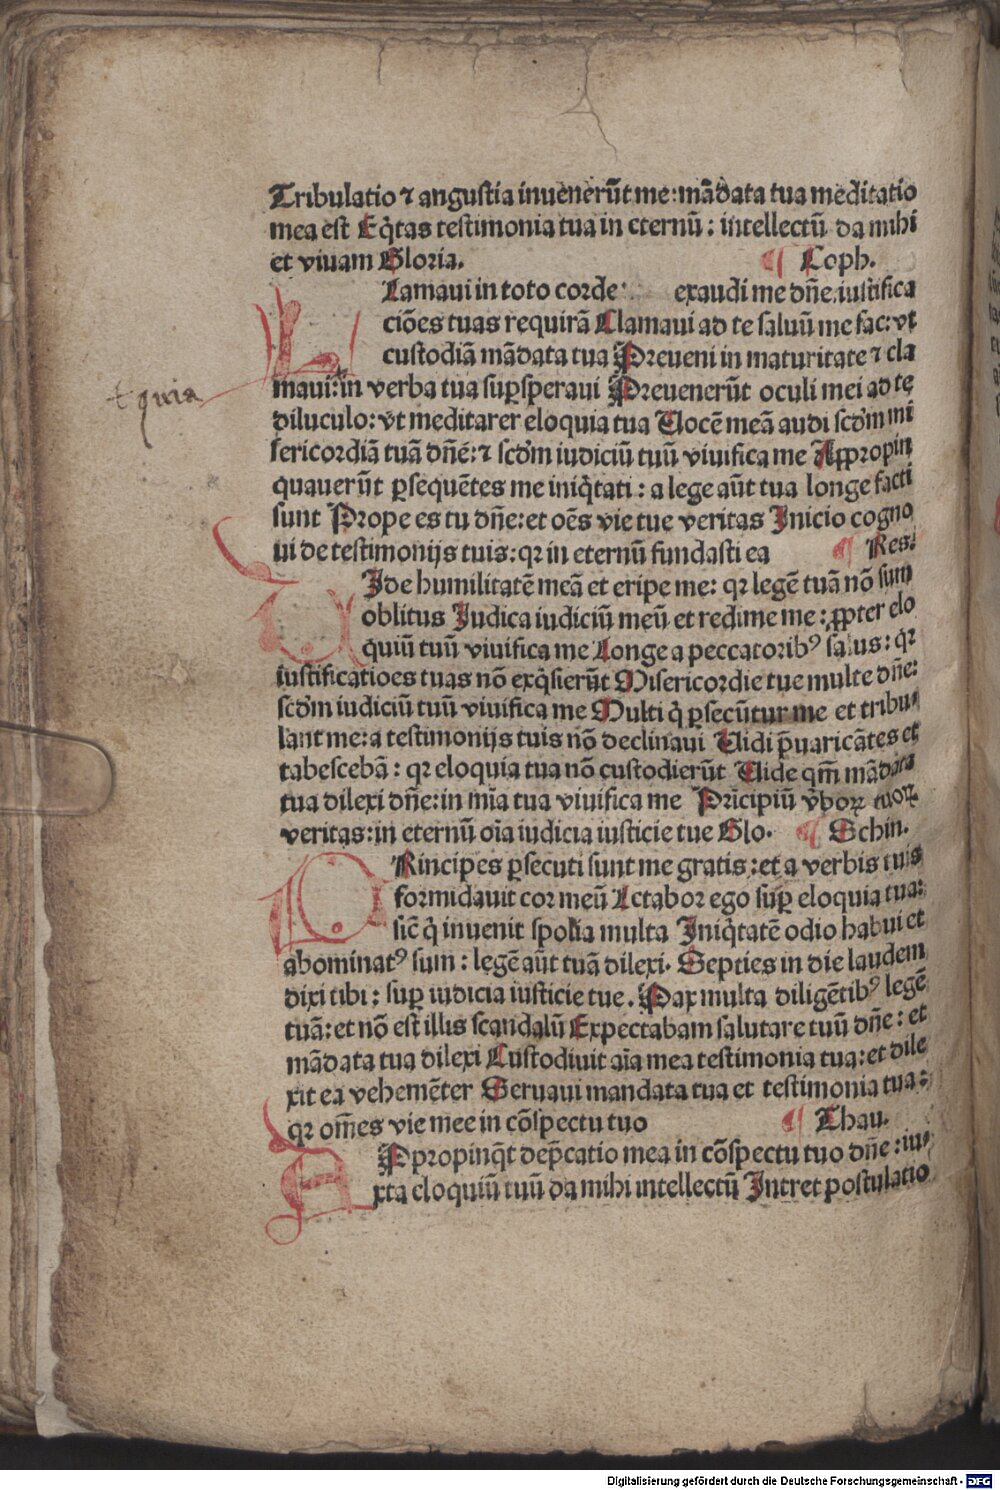 Tribulatio ⁊ angustia inuenerūt me: mādata tua meditatio
mea est Eq̇tas testimonia tua in eternū: intellectū da mihi
et viuam Gloria. ¶ Coph.
Lamaui in toto corde exaudi me dn̄e, iustifica
ciōes tuas requirā Clamaui ad te saluū me fac: vt
custodiā mādata tua Preueni in maturitate ⁊ cla
maui: in verba tua suꝑsperaui Preuenerūt oculi mei ad te
t quia
diluculo: vt meditarer eloquia tua Uocē meā audi scd'm mi
sericordiā tuā dn̄e: ⁊ scd'm iudiciū tuū viuifica me Appropin
quauerūt ꝑsequētes me iniq̇tati: a lege aūt tua longe facti
sunt Prope es tu dn̄e: et oēs vie tue veritas Inicio cogno
ui de testimonijs tuis: qꝛ in eternū fundasti ea ¶ Res.
V Ide humilitatē meā et eripe me: qꝛ legē tuā nō sum
oblitus Iudica iudiciū meū et redime me: ꝓpter elo
quiū tuū viuifica me Longe a peccatoribꝰ salus: qꝛ
iustificatioes tuas nō exq̇sierūt Misericordie tue multe dn̄e:
scd'm iudiciū tuū viuifica me Multi q̇ ꝑsecūtur me et tribu
lant me: a testimonijs tuis nō declinaui Uidi p̄uaricātes et
tabescebā: qꝛ eloquia tua nō custodierūt Uide qm̄ mādata
tua dilexi dn̄e: in mīa tua viuifica me Prīcipiū v̄boꝝ tuoꝝ
veritas: in eternū oīa iudicia iusticie tue Glo. ¶ Schin.
P Rincipes ꝑsecuti sunt me gratis: et a verbis tuis
formidauit cor meū Letabor ego suꝑ eloquia tua:
sic̄ q̇ inuenit spolia multa Iniq̇tatē odio habui et
abominatꝰ sum: legē aūt tuā dilexi. Septies in die laudem
dixi tibi: suꝑ iudicia iusticie tue. Pax multa diligētibꝰ legē
tuā: et nō est illis scandalū Expectabam salutare tuū dn̄e: et
mādata tua dilexi Custodiuit aīa mea testimonia tua: et dile
xit ea vehemēter Seruaui mandata tua et testimonia tua:
qꝛ om̄es vie mee in cōspectu tuo ¶ Thau.
A Ppropinq̇t dep̄catio mea in cōspectu tuo dn̄e: iu
xta eloquiū tuū da mihi intellectū Intret postulatio
Digitalisierung gefördert durch die Deutsche Forschungsgemeinschaft - DFG